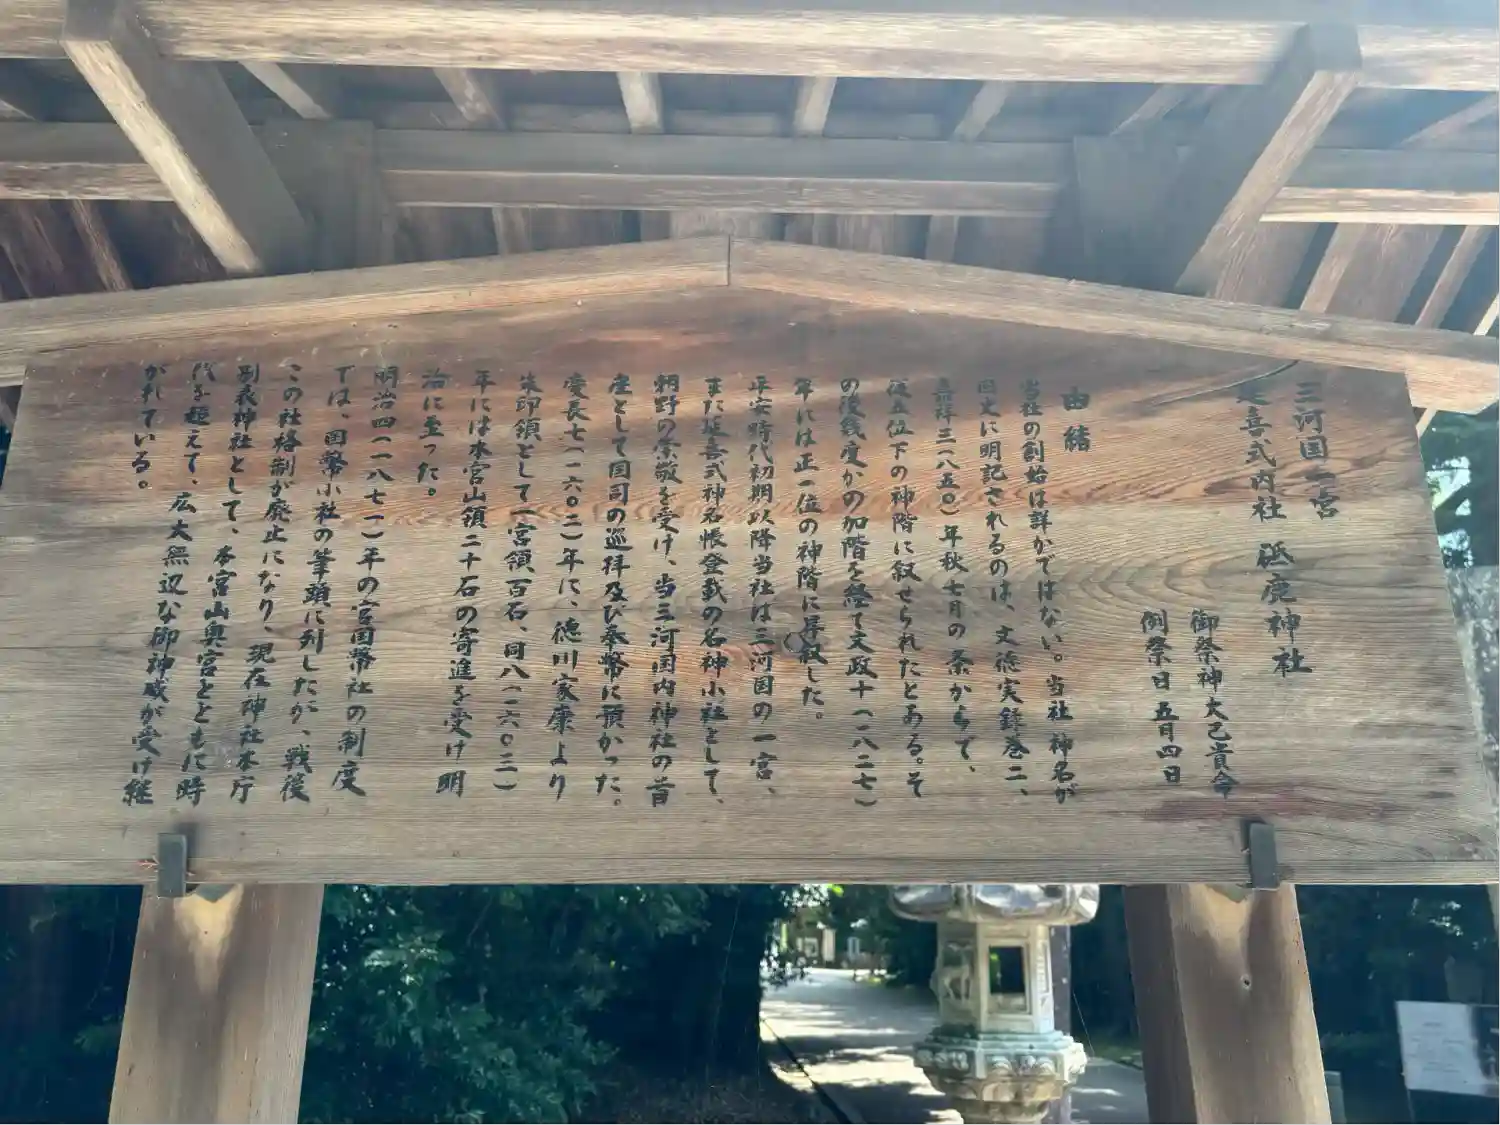 三河国一宮
延喜式内社 砥鹿神社
御祭神大己貴命
例祭日五月四日
由緒
当社の創始は詳かではない。当社神名が
国史に明記されるのは、文徳実録巻二、
嘉祥三(八五〇)年秋七月の条からで、
従五位下の神階に叙せられたとある。そ
の後幾度かの加階を経て文政十(一八二七)
年には正一位の神階に昇叙した。
平安時代初期以降当社は三河国の一宮、
また延喜式神名帳登載の名神小社として、
朝野の崇敬を受け、当三河国内神社の首
座として国司の巡拝及び奉幣に預かった。
慶長七(一六〇二)年に、徳川家康より
朱印領として一宮領、百石、同八(一六〇三)
年には本宮山領二十石の寄進を受け明
治に至った。
明治四(一八七一)年の官国幣社の制度
では、国幣小社の筆頭に列したが、戦後
この社格制が廃止になり、現在神社本庁
別表神社として、本宮山奥宮とともに時
代を超えて、広大無辺な御神威が受け継
がれている。